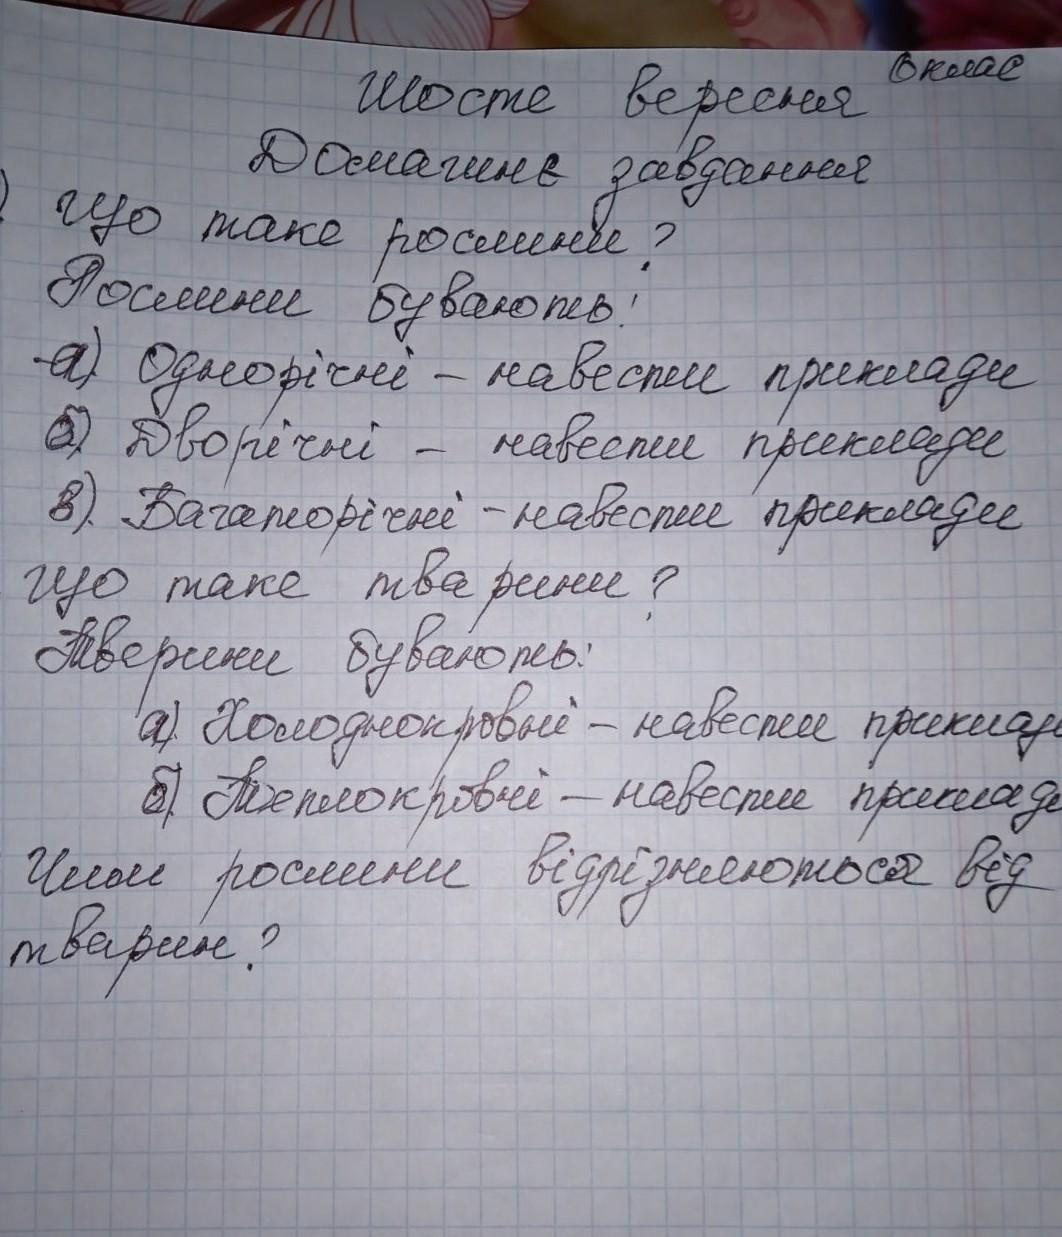 6 клас
Шосте вересня
Домашнє завдання
) Що таке рослини?
Рослини бувають:
а) Однорічні - навести приклади
б) Дворічні - навести приклади
в) Багаторічні - навести приклади
Що таке тварини?
Тверини бувають:
а) Холоднокровні - навести приклад
б) Теплокровні - навести приклад
Чим рослини відрізняються від
тварин?